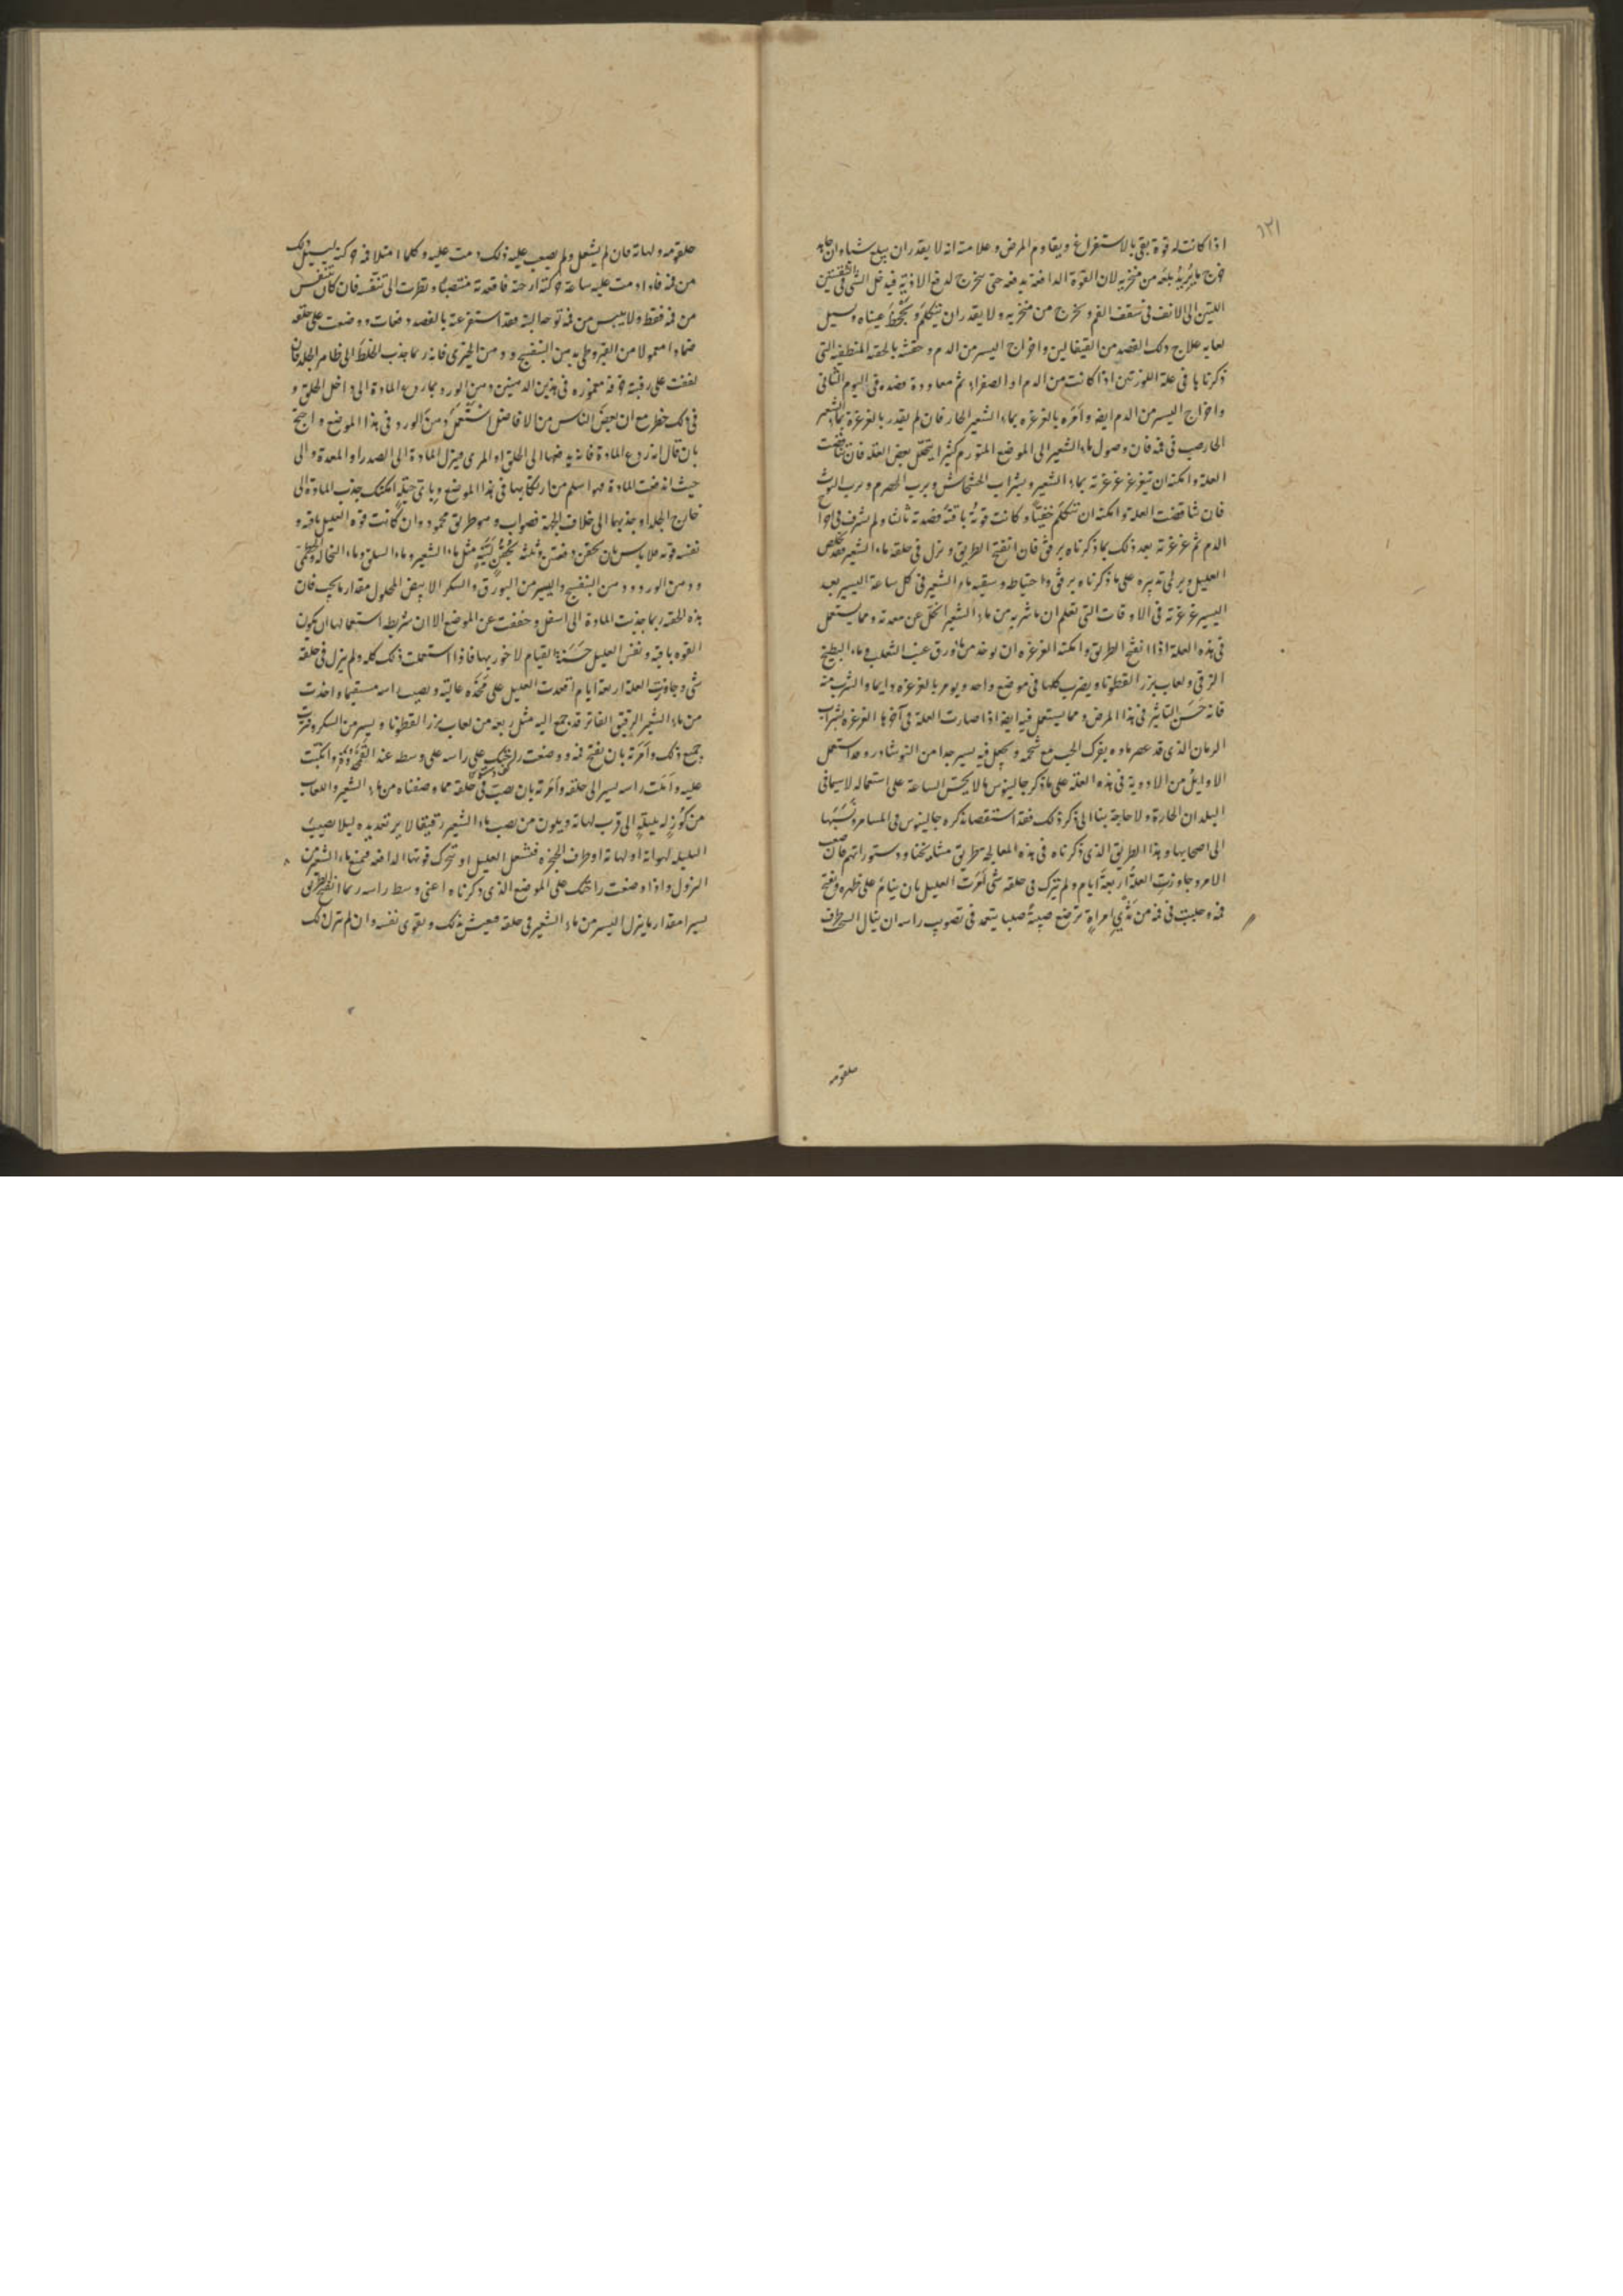 ١٢١
اذا كانت له قوة بقى بالاستفراغ ويقاوم المرض وعلامته انه لا يقدر ان يبلع شيا وان
خرج ما يريد بلعه من منخريه لان القوة الدافعة يدفعه حتى يخرج لدفع الاذية فيدخل الشى فى الثقبتين
اللتين الى الانف فى سقف الفم ويخرج من منخريه ولا يقدر ان يتكلم وتجحظ عيناه ويسيل
لعابه علاج ذلك الفصد من القيفالين واخراج اليسير من الدم وحقنته بالحقنة المنطقية التى
ذكرناها فى علة اللوزتين اذا كانت من الدم او الصفراء ثم معاودة فصده فى اليوم الثانى
واخراج اليسير من الدم ايضا وامره بالغرغرة بماء الشعير الحار فان لم يقدر بالغرغرة بماء الشعير
الحار صب فى فمه فان وصول ماء الشعير الى الموضع المتورم كثيرا يتحلل بعض العلة فان تناقصت
العلة وامكنه ان يتغرغر غرغرته بماء الشعير وبشراب الخشخاش وبرب الحصرم وبرب التوث
فان تناقصت العلة وامكنه ان يتكلم خفيا وكانت قوته باقية فصدته ثالثا ولم تشرف فى اخراج
الدم ثم غرغرته بعد ذلك بما ذكرناه برفق فان انفتح الطريق ونزل فى حلقه ماء الشعير فقد خلص
العليل ويرقى تدبيره على ما ذكرناه برفق واحتياط وسقيه ماء الشعير فى كل ساعة اليسير بعد
اليسير غرغرته فى الاوقات التى تعلم ان ما شربه من ماء الشعير انحل عن معدته ومما يستعمل
فى هذه العلة اذا انفتح الطريق وامكنه الغرغرة ان يوخذ من ماء ورق عنب الثعلب وماء البطيخ
الرقى ولعاب بزر القطونا ويضرب كلها فى موضع واحد ويومر بالغرغرة دايما والشرب منه
فانه حسن التاثير فى هذا المرض ومما يستعمل فيه ايضا اذا صارت العلة فى آخرها الغرغرة بشراب
الرمان الذى قد عصر ماوه بفرك الحب مع شحمه ويجعل فيه يسير جدا من النوشادر وقد استعمل
الاوايل من الادوية فى هذه العلة على ما ذكر جالينوس ما لا يحسن الساعة على استعماله لا سيما فى
البلدان الحارة ولا حاجة بنا الى ذكر ذلك فقد استقصا ذكره جالينوس فى الميامر ونسبها
الى اصحابها وهذا الطريق الذى ذكرناه فى هذه المعالجة طريق مشايخنا ودستوراتهم فان صعب
الامر وجاوزت العلة اربعة ايام ولم ينزل فى حلقه شى امرت العليل بان ينام على ظهره وتفتح
فمه وحلبت فى فمه من ثدى امراة ترضع صبية صلبا يتعمد فى تصويب راسه ان ينال الشخب طرف
حلقومه
حلقومه ولهاته فان لم يشعل ولم يصعب عليه ذلك دمت عليه وكلما امتلا فمه حركته ليسيل ذلك
من فمه فاذا دمت عليه ساعة تركته اراحة فاقعدته منتصبا ونظرت الى تنفسه فان كان يتنفس
من فمه فقط ولا يحبس من فمه توحا البتة فقد استفرغته بالفصد دفعات ووضعت على حلقه
ضمادا معمولا من القيروطى بدهن البنفسج ودهن الخيرى فانه ربما جذب الخلط الى ظاهر الجلد فان
لففت على رقبته خرقة مغموزه فى هذين الدهنين ودهن الورد بما ردع المادة الى داخل الحلق و
فى ذلك خطر مع ان بعض الناس من الافاضل استعمل دهن الورد فى هذا الموضع واحتج
بان قال انه ردع المادة فانه يدفعها الى الحلق او المرى فينزل المادة الى الصدر او المعدة والى
حيث اندفعت المادة فهو اسلم من ارتكابها فى هذا الموضع وباى حيلة امكنك جذب المادة الى
خارج الجلد او جذبها الى خلاف الجهة فصواب وهو طريق محمود وان كانت قوة العليل باقية و
نفسه قوية فلا باس بان يحقن دفعتين وثلثة بحقن لينة مثل ماء الشعير وماء السلق وماء النخالة والخطمى
ودهن الورد ودهن البنفسج واليسير من البورق والسكر الابيض المحلول مقدار ما يجب فان
هذه الحقنة ربما جذبت المادة الى اسفل وخففت عن الموضع الا ان شريطة استعمالها ان يكون
القوه باقية ونفس العليل حسنة القيام لا خور بها فاذا استعملت ذلك كله ولم ينزل فى حلقه
شى وجاوزت العلة اربعة ايام اقعدت العليل على مخده عالية ونصبت راسه مستقيما واخذت
من ماء الشعير الرقيق الفاتر قد جمع اليه مثل ربعه من لعاب بزر القطونا ويسير من السكر وضربت
جميع ذلك وامرته بان يفتح فمه ووضعت راحتك على راسه على وسط عند القمحدوة واتكيت
عليه واملت راسه يسيرا الى خلفه وامرته بان يصب فى حلقه مما وصفناه من ماء الشعير واللعاب
من كوز له بلبلة الى قرب لهاته ويكون من يصب ماء الشعير رقيقا لا يرتعد يده ليلا يصيب
البلبلة لهاته او لهاته او طرف الحنجره فيشعل العليل او تتحرك قوتها الدافعة فيمنع ماء الشعير من
النزول واذا وضعت راحتك على الموضع الذى ذكرناه اعنى وسط راسه ربما انفتح الطريق
يسيرا مقدار ما ينزل اليسير من ماء الشعير فى حلقه فيعيش بذلك ويقوى نفسه وان لم ينزل ذلك